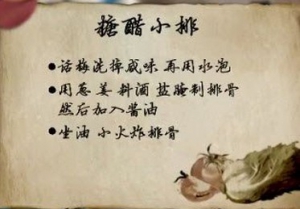 糖醋小排
●话梅洗掉咸味 再用水泡
●用葱 姜 料酒 盐 腌制排骨
然后加入酱油
●坐油 小火炸排骨